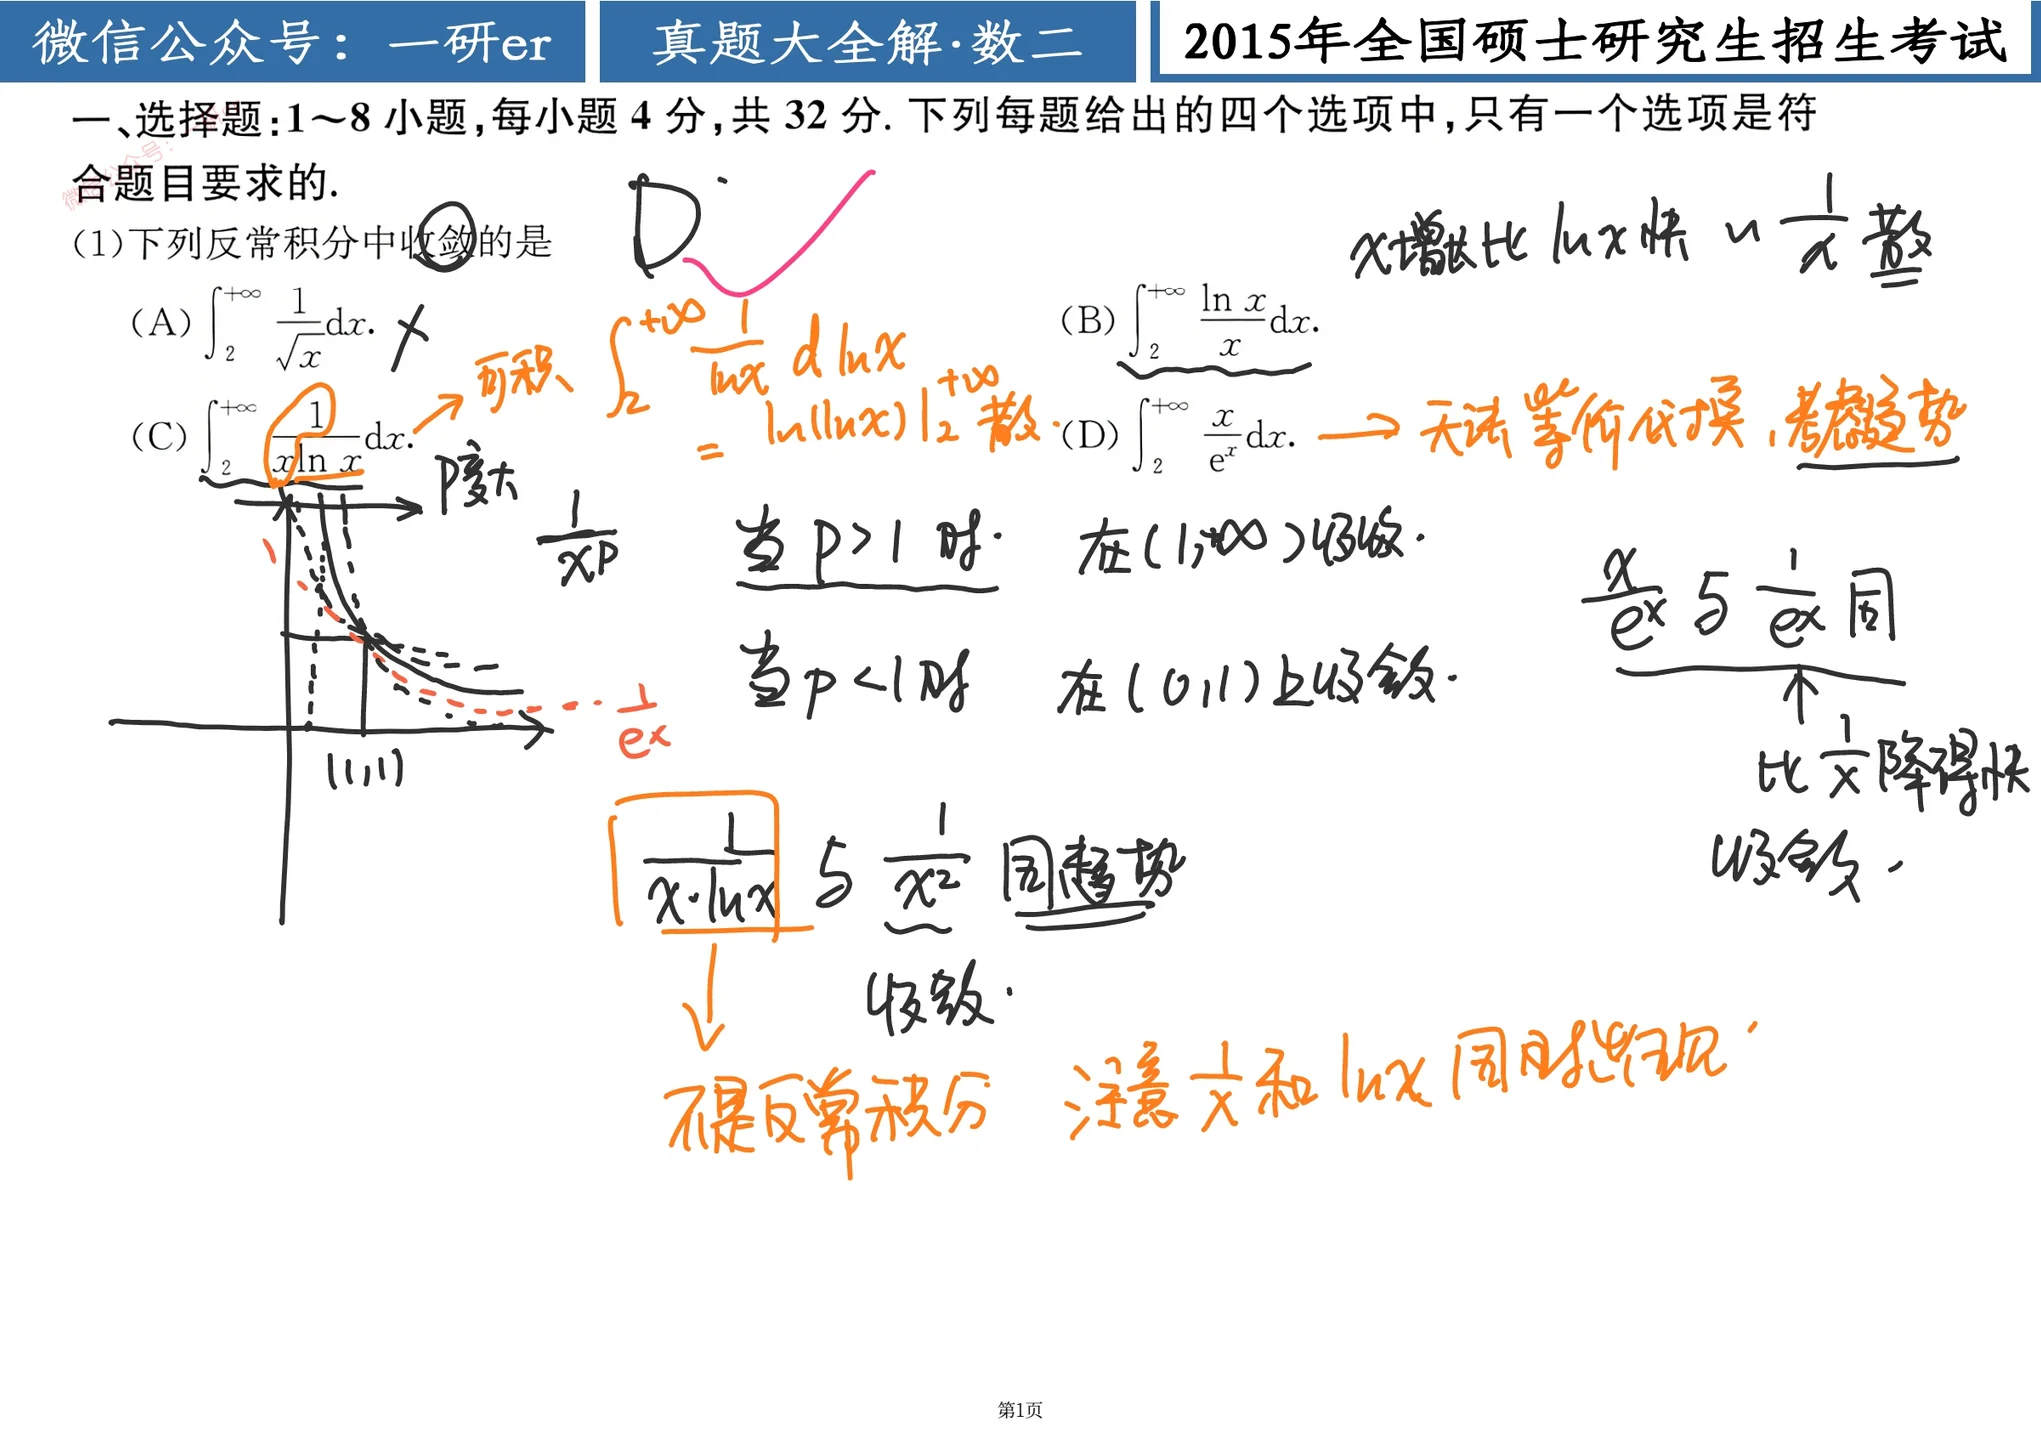 微信公众号：一研er
真题大全解·数二
2015年全国硕士研究生招生考试
一、选择题:1～8 小题,每小题 4 分,共 32 分. 下列每题给出的四个选项中,只有一个选项是符
合题目要求的.
微信公众号：
D.
x增长比 ln x 快 ∽ 1/x 散
(1)下列反常积分中收敛的是
(A) ∫₂^{+∞} 1/√x dx. ×
(B) ∫₂^{+∞} ln x/x dx.
可积 ∫₂^{+∞} 1/lnx d lnx
= ln(lnx)|₂^{+∞} 散.
(C) ∫₂^{+∞} 1/(x ln x) dx.
(D) ∫₂^{+∞} x/e^x dx. → 无法等价代换,考虑趋势
P变大
1/x^p 当 p>1 时. 在(1,+∞)收敛.
当 p<1 时 在(0,1)上收敛.
x/e^x 与 1/e^x 同
比 1/x 降得快
收敛.
1/e^x
(1,1)
1/(x·lnx) 与 1/x² 同趋势
收敛.
不是反常积分 注意 1/x 和 lnx 同时出现
第1页